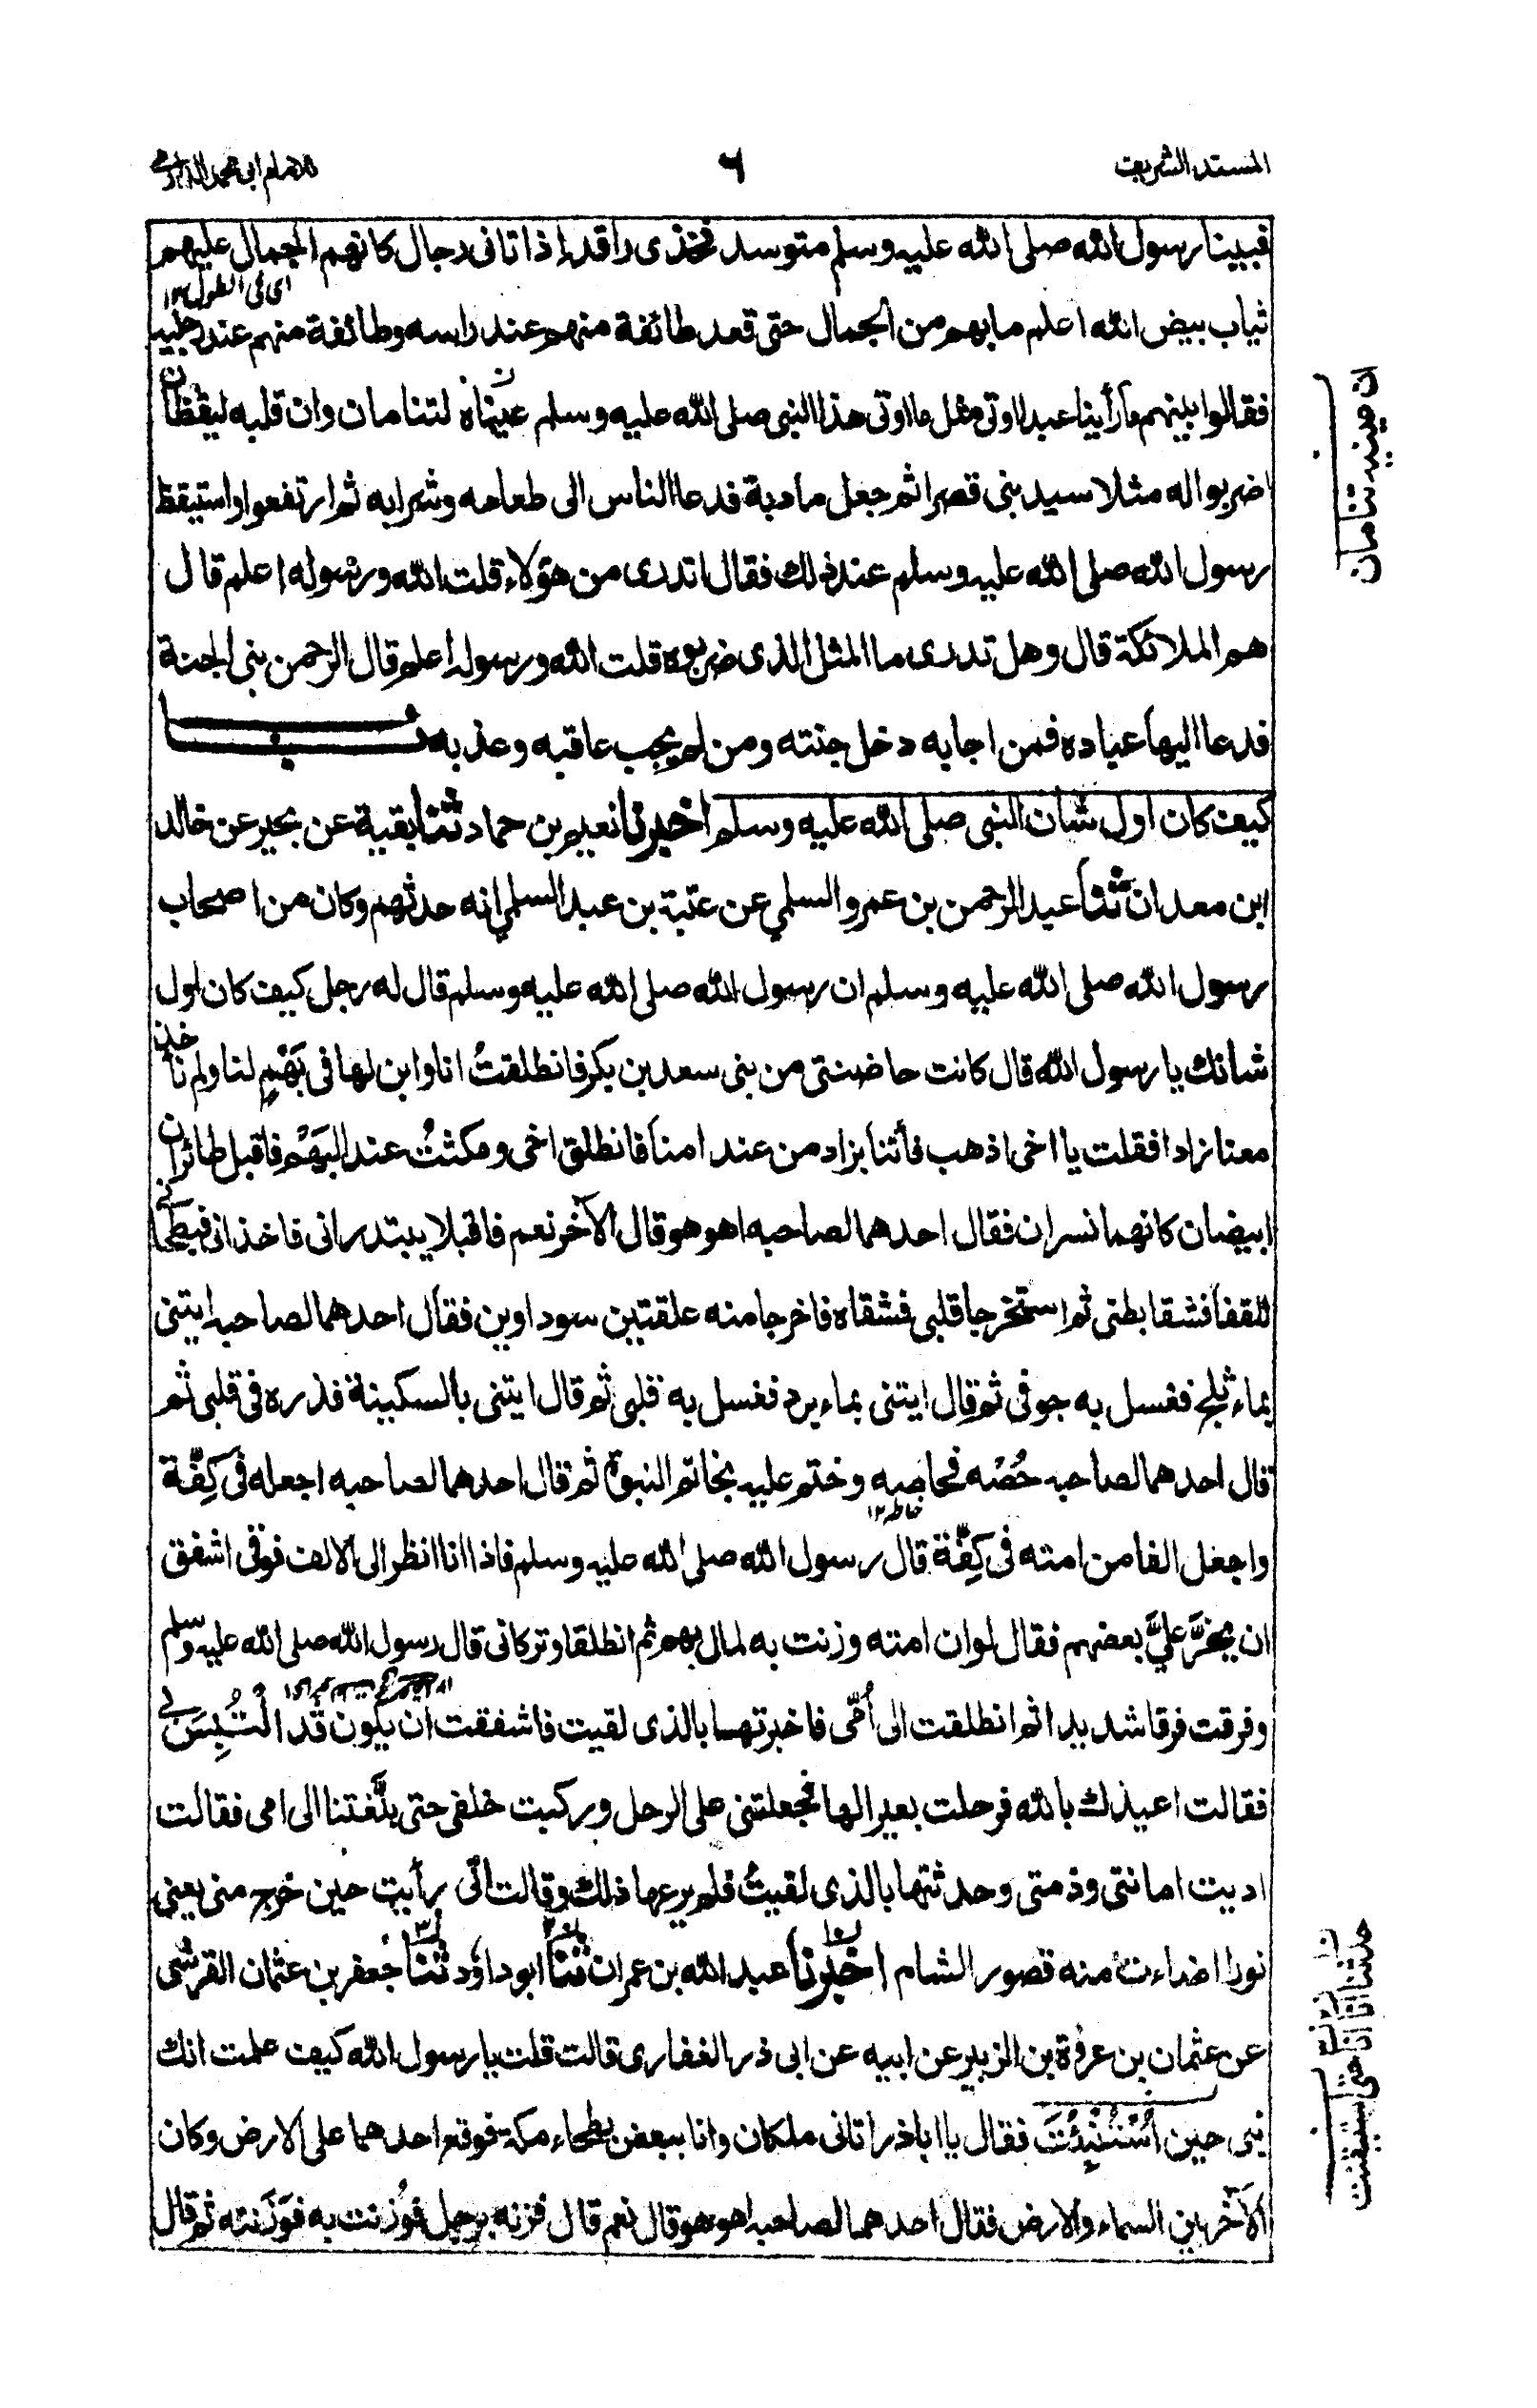 المسند الشريف
٦
للامام ابي محمد الدارمي
فبينا رسول الله صلى الله عليه وسلم متوسد فخذى راقد إذ اتانى رجال كانهم الجمال عليهم
اى فى الطول ١٢
ثياب بيض الله اعلم ما بهم من الجمال حتى قعد طائفة منهم عند راسه وطائفة منهم عند رجليه
فقالوا بينهم ما رأينا عبدا اوتى مثل ما اوتى هذا النبى صلى الله عليه وسلم عيناه لتنامان وان قلبه ليقظان
اضربوا له مثلا سيد بنى قصرا ثم جعل مادبة فدعا الناس الى طعامه وشرابه ثم ارتفعوا واستيقظ
رسول الله صلى الله عليه وسلم عند ذلك فقال اتدرى من هؤلاء قلت الله ورسوله اعلم قال
هم الملائكة قال وهل تدرى ما المثل الذى ضربوه قلت الله ورسوله أعلم قال الرحمن بنى الجنة
فدعا اليها عباده فمن اجابه دخل جنته ومن لم يجب عاقبه وعذبه باب
كيف كان اول شان النبى صلى الله عليه وسلم اخبرنا نعيم بن حماد ثنا بقية عن بحير عن خالد
ابن معدان ثنا عبد الرحمن بن عمرو السلمي عن عتبة بن عبد السلمي انه حدثهم وكان من اصحاب
رسول الله صلى الله عليه وسلم ان رسول الله صلى الله عليه وسلم قال له رجل كيف كان اول
شأنك يا رسول الله قال كانت حاضنتى من بنى سعد بن بكر فانطلقتُ انا وابن لها فى بَهْمٍ لنا ولم ناخذ
معنا زادا فقلت يا اخى اذهب فأتنا بزاد من عند امنا فانطلق اخى ومكثتُ عند البَهْم فاقبل طائران
ابيضان كانهما نسران فقال احدهما لصاحبه اهو هو قال الآخر نعم فاقبلا يبتدرانى فاخذانى فبطحانى
للقفا فشقا بطنى ثم استخرجا قلبى فشقاه فاخرجا منه علقتين سوداوين فقال احدهما لصاحبه ايتنى
بماء ثلج فغسل به جوفى ثم قال ايتنى بماء برد فغسل به قلبى ثم قال ايتنى بالسكينة فذره فى قلبى ثم
قال احدهما لصاحبه حُصْه فحاصه وختم عليه بخاتم النبوة ثم قال احدهما لصاحبه اجعله فى كِفّة
خاطه ١٢
واجعل الفا من امته فى كِفّة قال رسول الله صلى الله عليه وسلم فاذا انا انظر الى الالف فوقى اشفق
ان يخرَّ عليَّ بعضهم فقال لو ان امته وزنت به لمال بهم ثم انطلقا وتركانى قال رسول الله صلى الله عليه وسلم
وفرقت فرقا شديدا ثم انطلقت الى أُمّى فاخبرتها بالذى لقيت فاشفقت ان يكون قد الْتُبِسَ بى
فقالت اعيذك بالله فرحلت بعيرا لها فجعلتنى على الرحل وركبت خلفى حتى بلَّغتنا الى امى فقالت
اديت امانتى وذمتى وحدثتها بالذى لقيتُ فلم يرعها ذلك وقالت انّى رأيت حين خرج منى يعنى
نورا اضاءت منه قصور الشام اخبرنا عبد الله بن عمران ثنا ابو داؤد ثنا جعفر بن عثمان القرشى
عن عثمان بن عروة بن الزبير عن ابيه عن ابى ذر الغفارى قالت قلت يا رسول الله كيف علمت انك
نبى حين اُسْتُنْبِئْتَ فقال يا ابا ذر اتانى ملكان وانا ببعض بطحاء مكة فوقع احدهما على الارض وكان
الآخر بين السماء والارض فقال احدهما لصاحبه اهو هو قال نعم قال فزنه برجل فوُزنت به فوَزَنته ثم قال
ان عينيه تنامان
حدثنا
حتى استيقنت